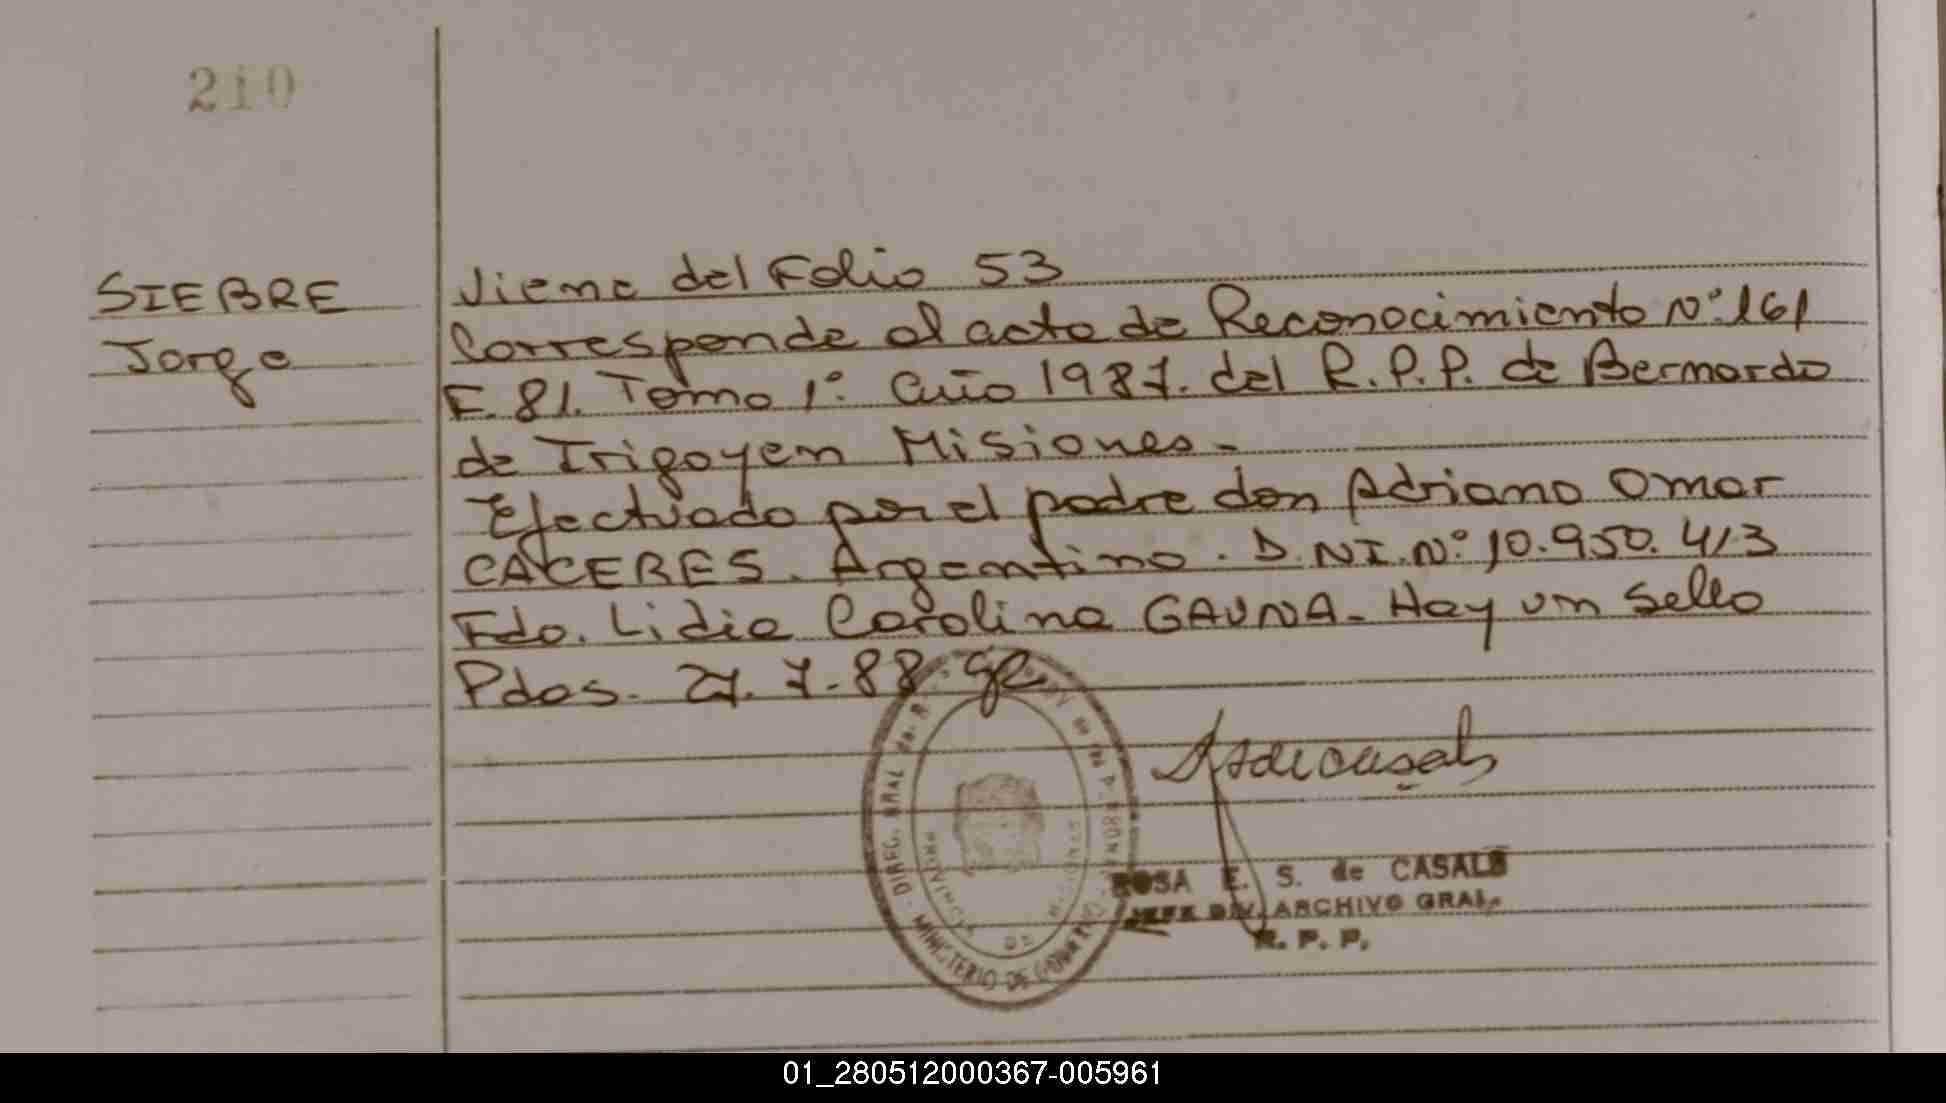 210
SIEBRE
Jorge
Viene del Folio 53
Corresponde al acta de Reconocimiento Nº 161
F. 81. Tomo 1º. Año 1987. del R.P.P. de Bernardo
de Irigoyen Misiones.-
Efectuado por el padre don Adriano Omar
CACERES. Argentino. D.NI.Nº 10.950.413
Fdo. Lidia Carolina GAUNA.- Hay un Sello
Pdas. 27.7.88
DIREC. GRAL
MINISTERIO DE
PROVINCIA DE
ROSA E. S. de CASALS
JEFE DIV. ARCHIVO GRAL.
R. P. P.
01_280512000367-005961